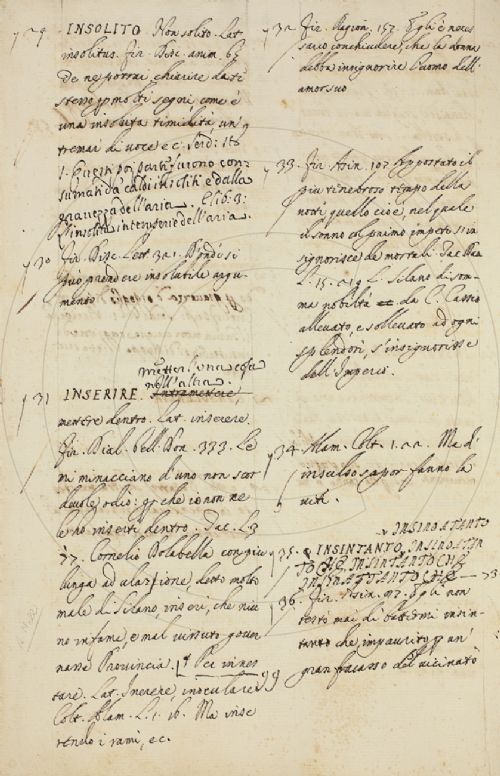 29 INSOLITO. Non solito. Lat.
insolitus. Fir. Disc. anim. 65
De ne potrai chiarire da te
stesso p molti segni, come è
una insolita timidità, un
tremar di voce ec. Serd: Ist:
1. Questi poi parte furono con-
sumati da caldi insoliti e dalla
gravezza dell'aria.
l'insolita intemperie dell'aria.
30 Fir. Disc. Lett. 321. Donde si
può prendere insolubile argu-
mento
metter l'una cosa
nell'altra.
31 INSERIRE. Intramettere
mettere dentro. Lat. inserere.
Fir. Dial. bell. Don. 333. Le
mi minacciano d'uno non scor-
devole odio: p che io non ne
le ho inserite dentro. Tac. L. 3
77. Cornelio Dolabella con più
lunga adulazione, detto molto
male di Silano, inserì, che niu-
no infame, e mal vissuto gover-
nasse Provincia. Per innes-
tare. Lat. Inserere, inoculare.
Colt. Alam. L. 1. 16. Ma inse-
rendo i rami, ec.
32 Fir. Ragion. 157. Egli è neces-
sario conchiudere, che la donna
debba insignorire l'uomo dell'
amor suo
33. Fir. Asin. 107 Appostato il
più tenebroso tempo della
notte, quello cioè, nel quale
il sonno col primo impeto s'in-
signorisce de mortali. Tac.
L. 15. Silano di som-
ma nobiltà da C. Cassio
allevato, e sollevato ad ogni
splendore, s'insignorisse
dell'Imperio.
34. Alam. Colt. 1. Ma d'
insulso sapor fanno la
vite.
INSINO A TANTO
35. INSINTANTO, INSINO A TAN-
TO CHE, INSINTANTO CHE
INSINATTANTO CHE
36. Fir. Asin. 97. Egli non
restò mai di battermi insin-
tanto che, impaurito p un
gran fracasso del vicinato